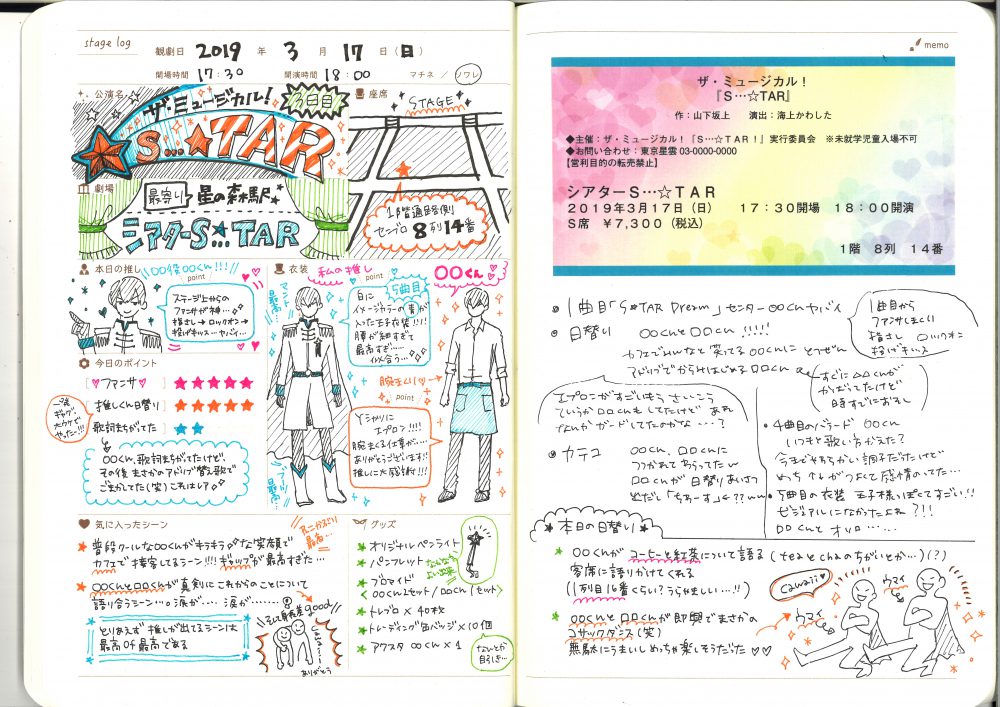 stage log
観劇日 2019 年 3 月 17 日 (日)
開場時間 17:30 開演時間 18:00 マチネ / ソワレ
公演名
ザ・ミュージカル!
3日目
S…★TAR
座席
STAGE
1階通路側
センブロ 8列14番
劇場
最寄り 星の森駅
シアターS…TAR
本日の推し
〇〇役〇〇くん!!!
point
ステージ上からの
ファンサが神…
指さし→ロックオン→
投げキッス…ヤバイ…
衣装
私の推し
point
〇〇くん
5曲目
マント最高…
白に
イメージカラーの青が
入った王子衣装!!!
腰が細すぎて
最高すぎ…
似合う…
腕まくり
point
Yシャツに
エプロン!!!!
腕まくる仕草が…
ありがとうございます!!
推しに大感謝!!!
今日のポイント
[ ファンサ ] ★★★★★
[ 推しくん日替り ] ★★★★★
歌詞まちがてた ★★
一発ギャグ
大ウケで
やったー!!!
〇〇くん、歌詞まちがてたけど、
その後まさかのアドリブ替え歌で
ごまかしてた(笑) これはレア
気に入ったシーン
普段クールな〇〇くんがキラキラな笑顔で
カフェで接客してるシーン!!! ギャップが最高すぎた…
〇〇くんと□□くんが真剣にこれからのことについて
語り合うシーン…の涙が…. 涙が………
とりあえず推しが出てるシーンは
最高of最高である
そして身長差good
ありがとう
グッズ
オリジナルペンライト
パンフレット
ブロマイド
〈〇〇くん2セット/□□くん1セット〉
トレブロ × 40枚
トレーディング缶バッジ × 10個
アクスタ 〇〇くん × 1
なんとか
自引き…
memo
ザ・ミュージカル!
『S…☆TAR』
作:山下坂上 演出:海上かわした
◆主催:ザ・ミュージカル!『S…☆TAR!』実行委員会 ※未就学児童入場不可
◆お問い合わせ:東京星雲 03-0000-0000
【営利目的の転売禁止】
シアターS…☆TAR
2019年3月17日(日) 17:30開場 18:00開演
S席 ¥7,300(税込)
1階 8列 14番
1曲目「S★TAR Dream」センター〇〇くんヤバイ
1曲目から
ファンサしまくり
指さし ロックオン
投げキッス
日替り 〇〇くんと□□くん !!!!!
カフェでみんなと笑ってる〇〇くんに とつぜん
エプロンがすごいもう さいこう
ていうか □□くんもしてたけど あれ
なんかガードしてたのかな…?
4曲目のバラード 〇〇くん
いつもと歌い方かえた?
5曲目の衣装 王子様っぽくてすごい!!
カテコ 〇〇くん、□□くんに
つかまれてわらってたw
□□くんが日替りあいさつ
本日の日替り
〇〇くんがコーヒーと紅茶について語る (teaとchaのちがいとか…)(?)
客席に語りかけてくれる
(1列目16番くらい? うらやましい…!!)
〇〇くんと□□くんが即興でまさかの
コサックダンス(笑)
無駄にうまいしめっちゃ楽しそうだた♡♡
Cawaii
ウマイ
ウマイ